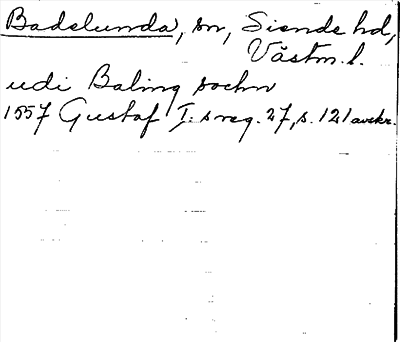 Badelunda, sn, Siende hd,
Västm. l.
udi Baling sochn
1557 Gustaf I:s reg. 27, s. 121 avskr.